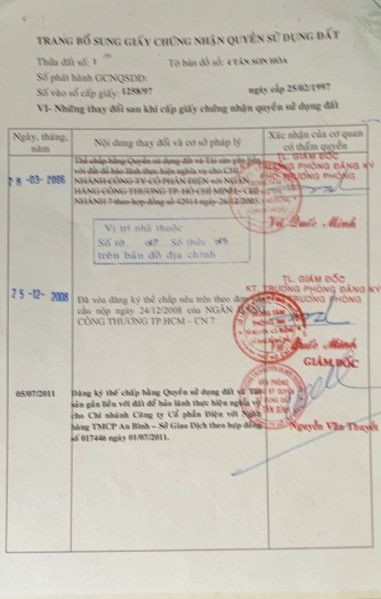 TRANG BỔ SUNG GIẤY CHỨNG NHẬN QUYỀN SỬ DỤNG ĐẤT
Thửa đất số: 1 Tờ bản đồ số: 4 TÂN SƠN HÒA
Số phát hành GCNQSDĐ:
Số vào sổ cấp giấy: 1258/97 ngày cấp 25/02/1997
VI- Những thay đổi sau khi cấp giấy chứng nhận quyền sử dụng đất
Ngày, tháng, năm
Nội dung thay đổi và cơ sở pháp lý
Xác nhận của cơ quan có thẩm quyền
28-03-2006
Thế chấp bằng Quyền sử dụng đất và Tài sản gắn liền
với đất để bảo lãnh thực hiện nghĩa vụ cho CHI
NHÁNH CÔNG TY CỔ PHẦN ĐIỆN với NGÂN
HÀNG CÔNG THƯƠNG TP.HỒ CHÍ MINH - CHI
NHÁNH 7 theo hợp đồng số 42914 ngày 26/12/2005.
TL. GIÁM ĐỐC
TRƯỞNG PHÒNG ĐĂNG KÝ
TRƯỞNG PHÒNG
Quốc Minh
Vị trí nhà thuộc
Số tờ Số thửa
trên bản đồ địa chính
25-12-2008
Đã xóa đăng ký thế chấp nêu trên theo đơn
cầu nộp ngày 24/12/2008 của NGÂN HÀNG
CÔNG THƯƠNG TP.HCM – CN 7.
TL. GIÁM ĐỐC
KT. TRƯỞNG PHÒNG ĐĂNG KÝ
TRƯỞNG PHÒNG
Quốc Minh
GIÁM ĐỐC
05/07/2011
Đăng ký thế chấp bằng Quyền sử dụng đất và Tài
sản gắn liền với đất để bảo lãnh thực hiện nghĩa vụ
cho Chi nhánh Công ty Cổ phần Điện với Ngân
hàng TMCP An Bình – Sở Giao Dịch theo hợp đồng
số 017446 ngày 01/07/2011.
Nguyễn Văn Thuyết